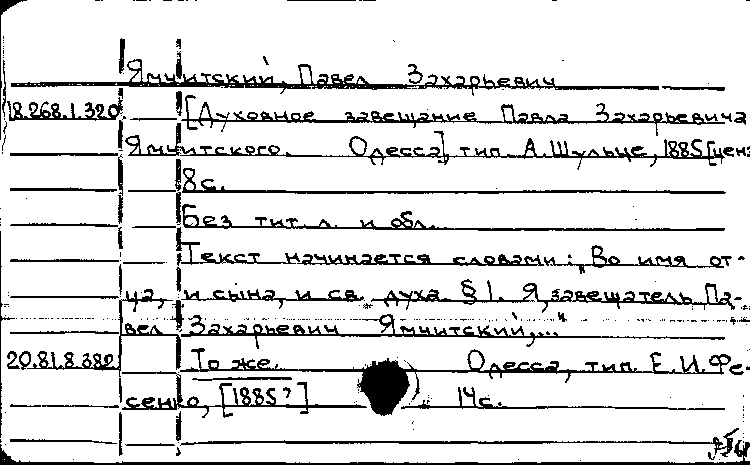 Ямчитский, Павел Захарьевич
18.268.1.320 [Духовное завещание Павла Захарьевича
Ямчитского. Одесса], тип. А. Шульце, 1885 [ценз
8 с.
Без тит. л. и обл.
Текст начинается словами: „Во имя от-
ца, и сына, и св. духа § 1. Я, завещатель Па-
вел Захарьевич Ямчитский,..."
20.81.8.382 То же. Одесса, тип. Е. И. Фе-
сенко, [1885?] 14 с.